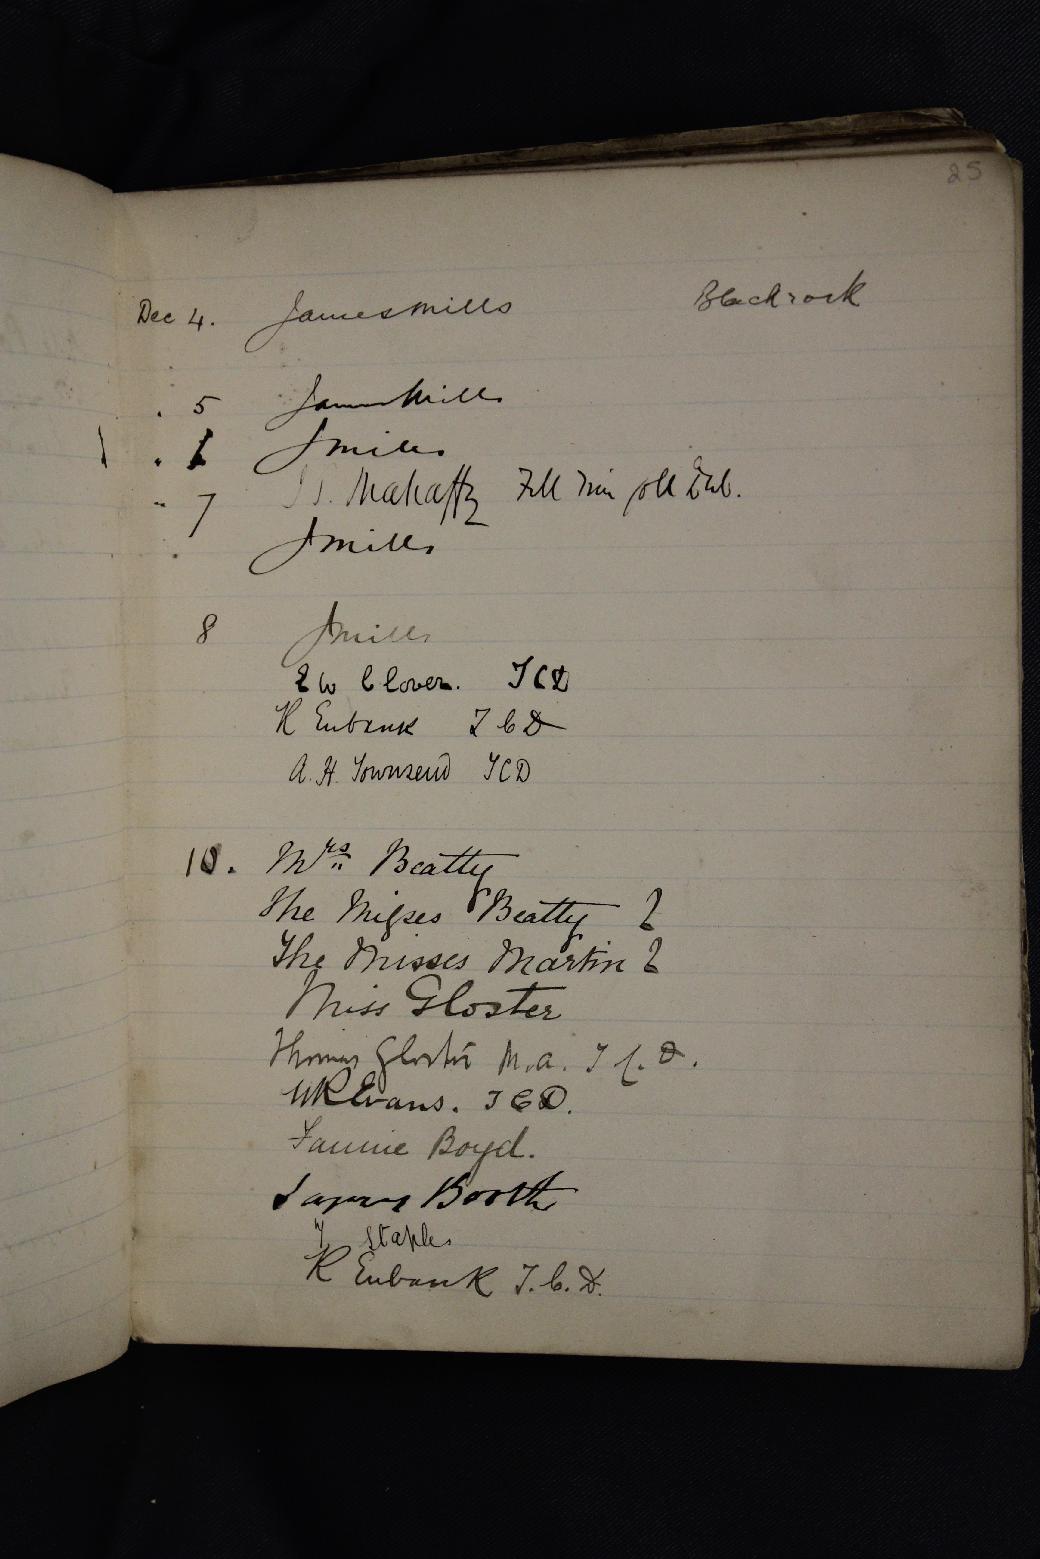 25
Dec 4. James Mills Blackrock
" 5 James Mills
" 6 J Mills
" 7 J.P. Mahaffy Fell Trin Coll Dub.
J Mills
8 J Mills
E W Clover. TCD
R Eubank TCD
A. H. Townsend TCD
10. Mrs Beatty
The Misses Beatty 2
The Misses Martin 2
Miss Gloster
Thomas Gloster M.A. T.C.D.
WR Evans. TCD.
Fannie Boyd.
James Booth
Staples
R Eubank T.C.D.